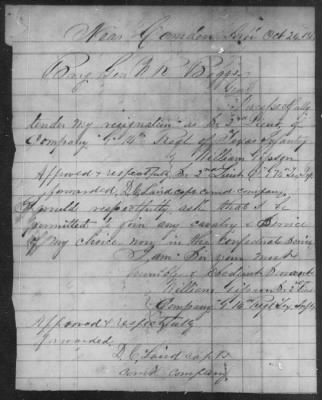 Near Camden Ark Oct 26
Brig Gen W R Boggs
Genl
I respectfully
tender my resignation as Br 2nd Lieut of
Company "G" 14th Regt of Texas Infantry
William Gibson
Approved & respectfully Br 2nd Lieut Co G
forwarded, D. C. Land capt comd company
I would respectfully ask that I be
permitted to join any cavalry Service
of my choice now in the Confederate
I am Sir your most
humble & obedient Servant
William Gibson Br 2nd
Company G 14th Regt Tex Infty
Approved & respectfully
forwarded
D. C. Land capt
comd company